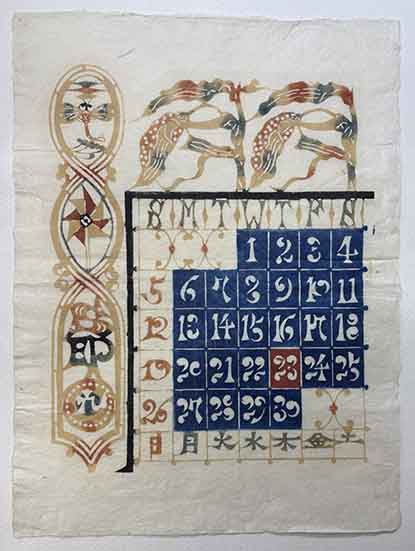 S M T W T F S
1 2 3 4
5 6 7 8 9 10 11
12 13 14 15 16 17 18
19 20 21 22 23 24 25
26 27 28 29 30
日 月 火 水 木 金 土